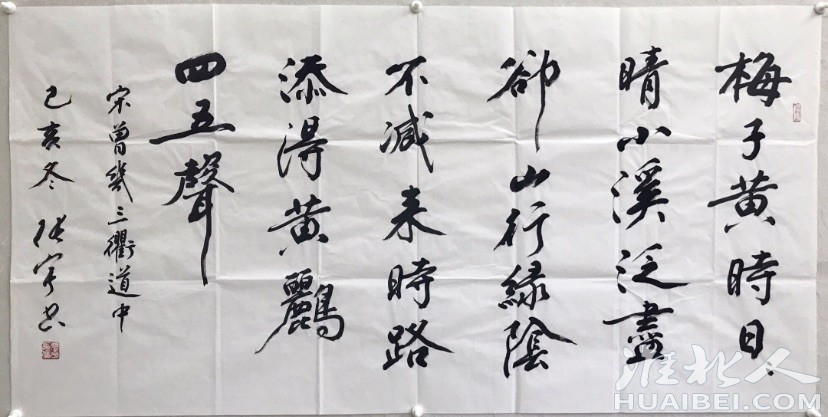 梅子黄時日、
晴小溪泛盡
卻山行緑陰
不減来時路
添得黄鸝
四五聲
宋曾幾三衢道中
己亥冬
淮北人
HUAIBEI.COM